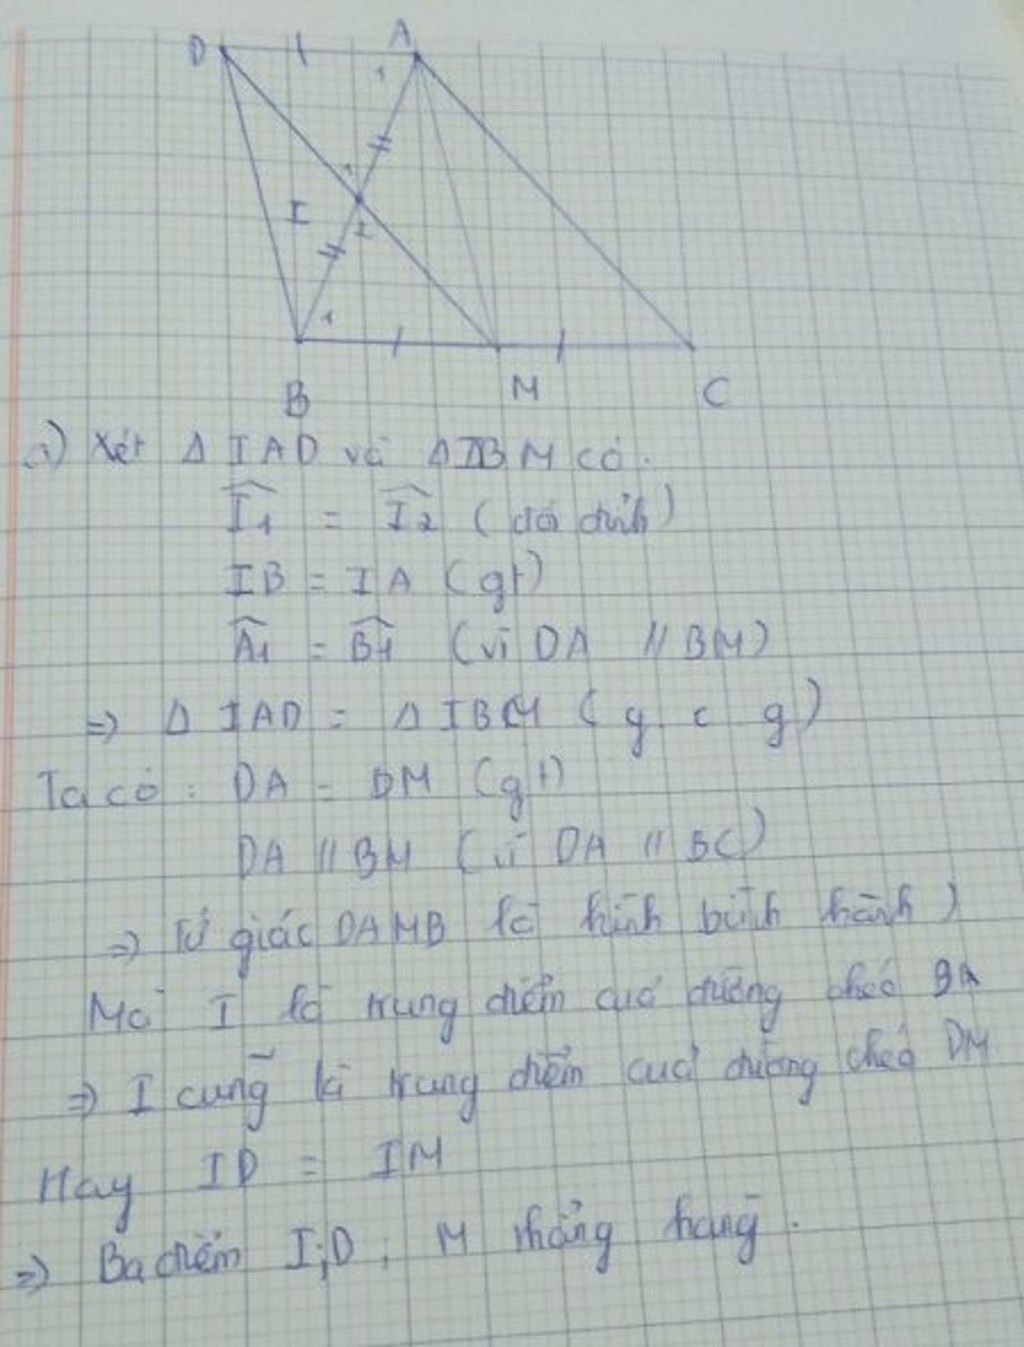 D A
1
1
I
2
1
B M C
a) Xét Δ IAD và Δ IBM có.
I1 = I2 (đối đỉnh)
IB = IA (gt)
A1 = B1 (vì DA // BM)
=> Δ IAD = Δ IBM (g c g)
Ta có : DA = DM (gt)
DA // BM (vì DA // BC)
=> Tứ giác DAMB là hình bình hành)
Mà I là trung điểm của đường chéo BA
=> I cũng là trung điểm của đường chéo DM
Hay ID = IM
=> Ba điểm I;D, M thẳng hàng.